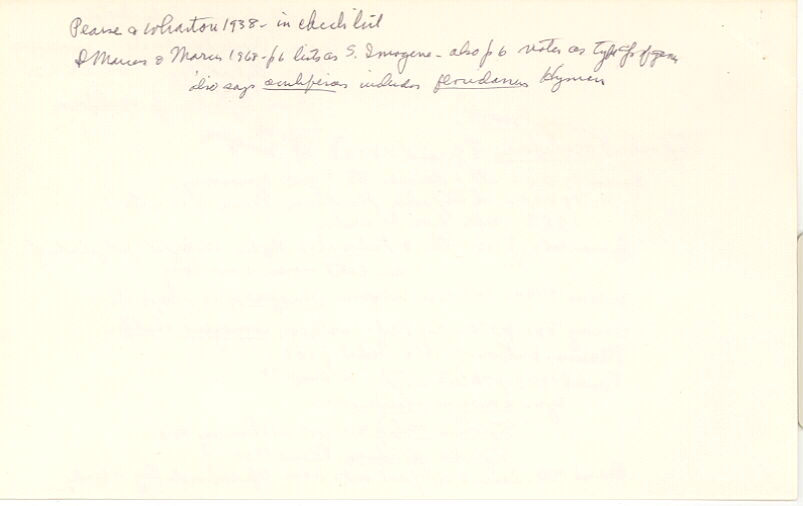 Pearse & Wharton 1938 - in checklist
Marcus & Marcus 1968 - p 6 lists as S. Imogine - also p 6 notes as type of genus
also says oculiferus includes floridanus Hyman